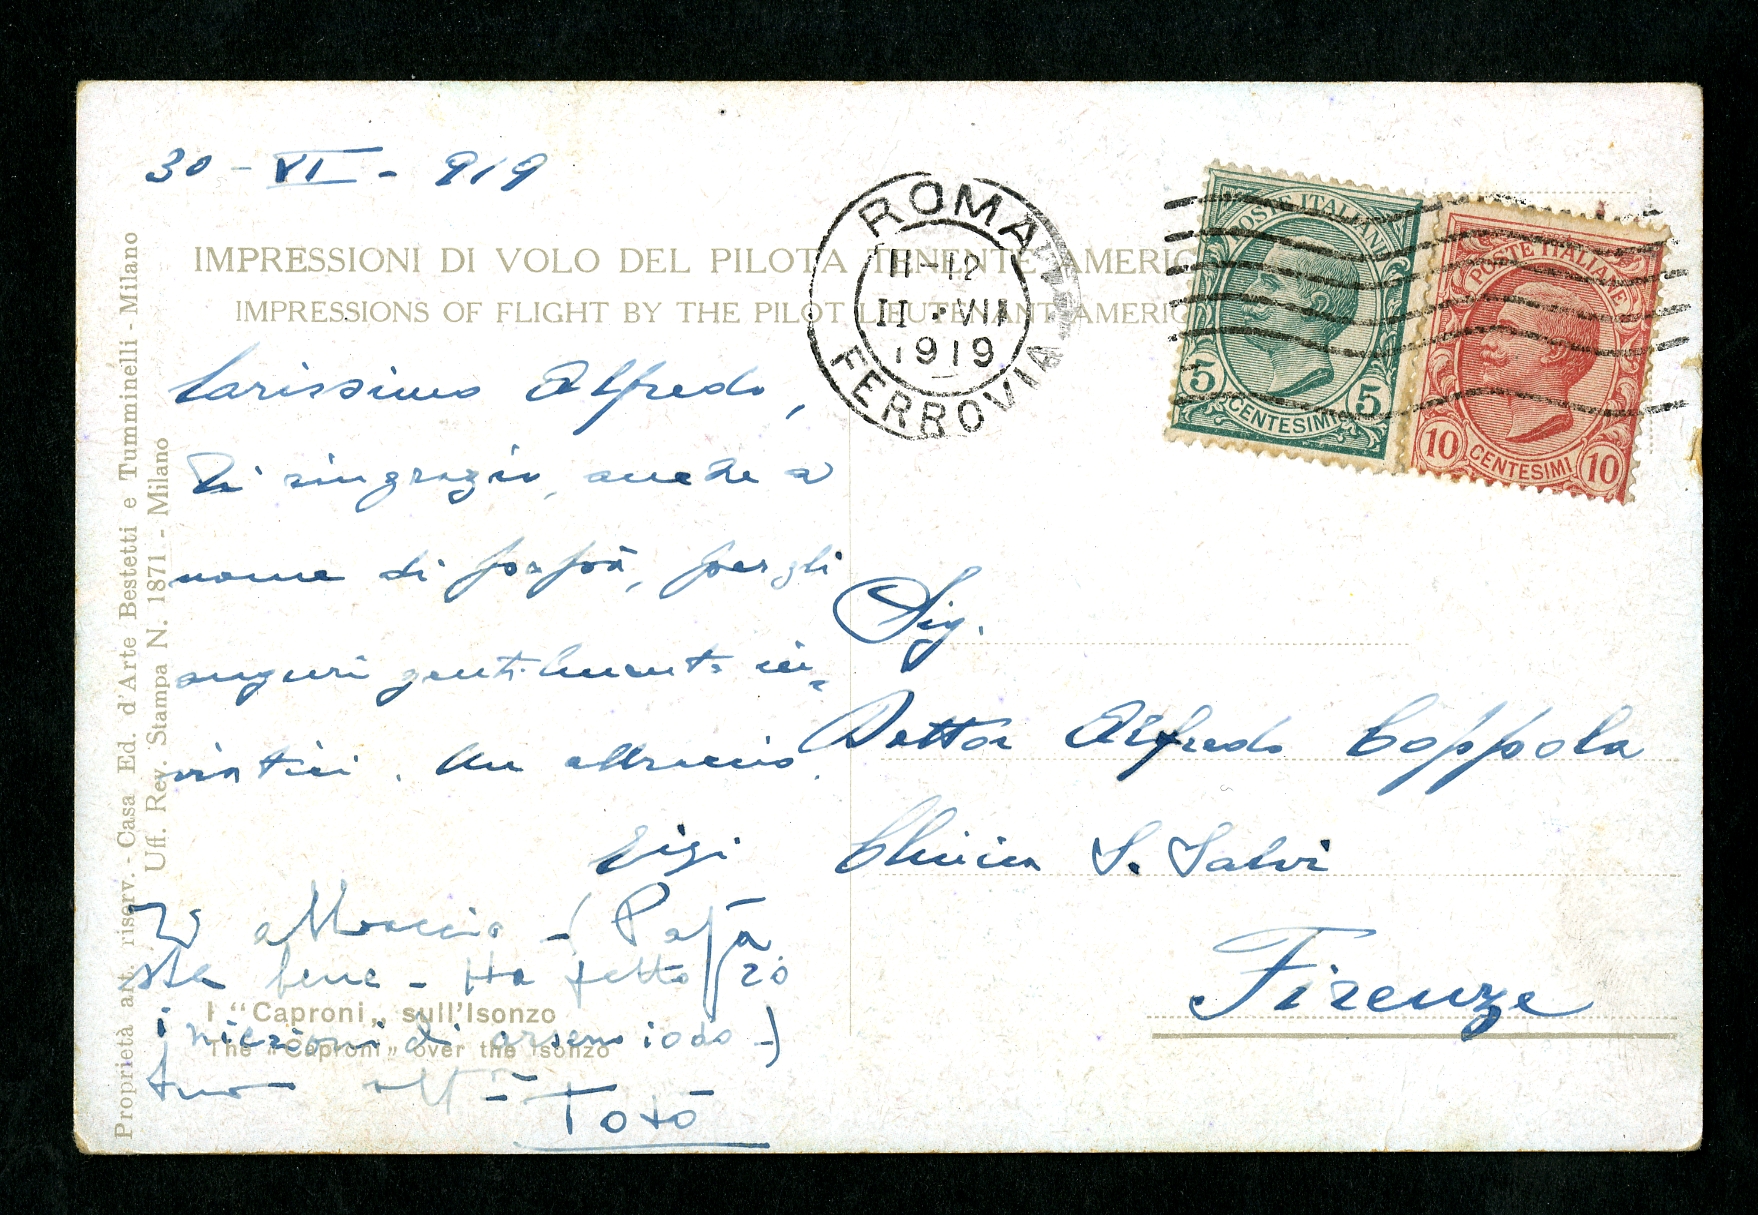 30 - VI - 919
IMPRESSIONI DI VOLO DEL PILOTA TENENTE AMERIG
IMPRESSIONS OF FLIGHT BY THE PILOT LIEUTENANT AMERIG
ROMA
11-12
II · VII
1919
FERROVIA
POSTE ITALIANE
5 5
CENTESIMI
POSTE ITALIANE
10 10
CENTESIMI
Carissimo Alfredo,
Ti ringrazio, anche a
nome di papà, per gli
auguri gentilmente in-
viatici. Un abbraccio.
Gigi
Ti abbraccio - (Papà
sta bene - Ha fatto 20
iniezioni di arsen iodo -)
tuo
Totò
I "Caproni„ sull'Isonzo
The "Caproni„ over the Isonzo
Sig.
Dottor Alfredo Coppola
Clinica S. Salvi
Firenze
Proprietà art. riserv. - Casa Ed. d'Arte Bestetti e Tumminelli - Milano
Uff. Rev. Stampa N. 1871 - Milano